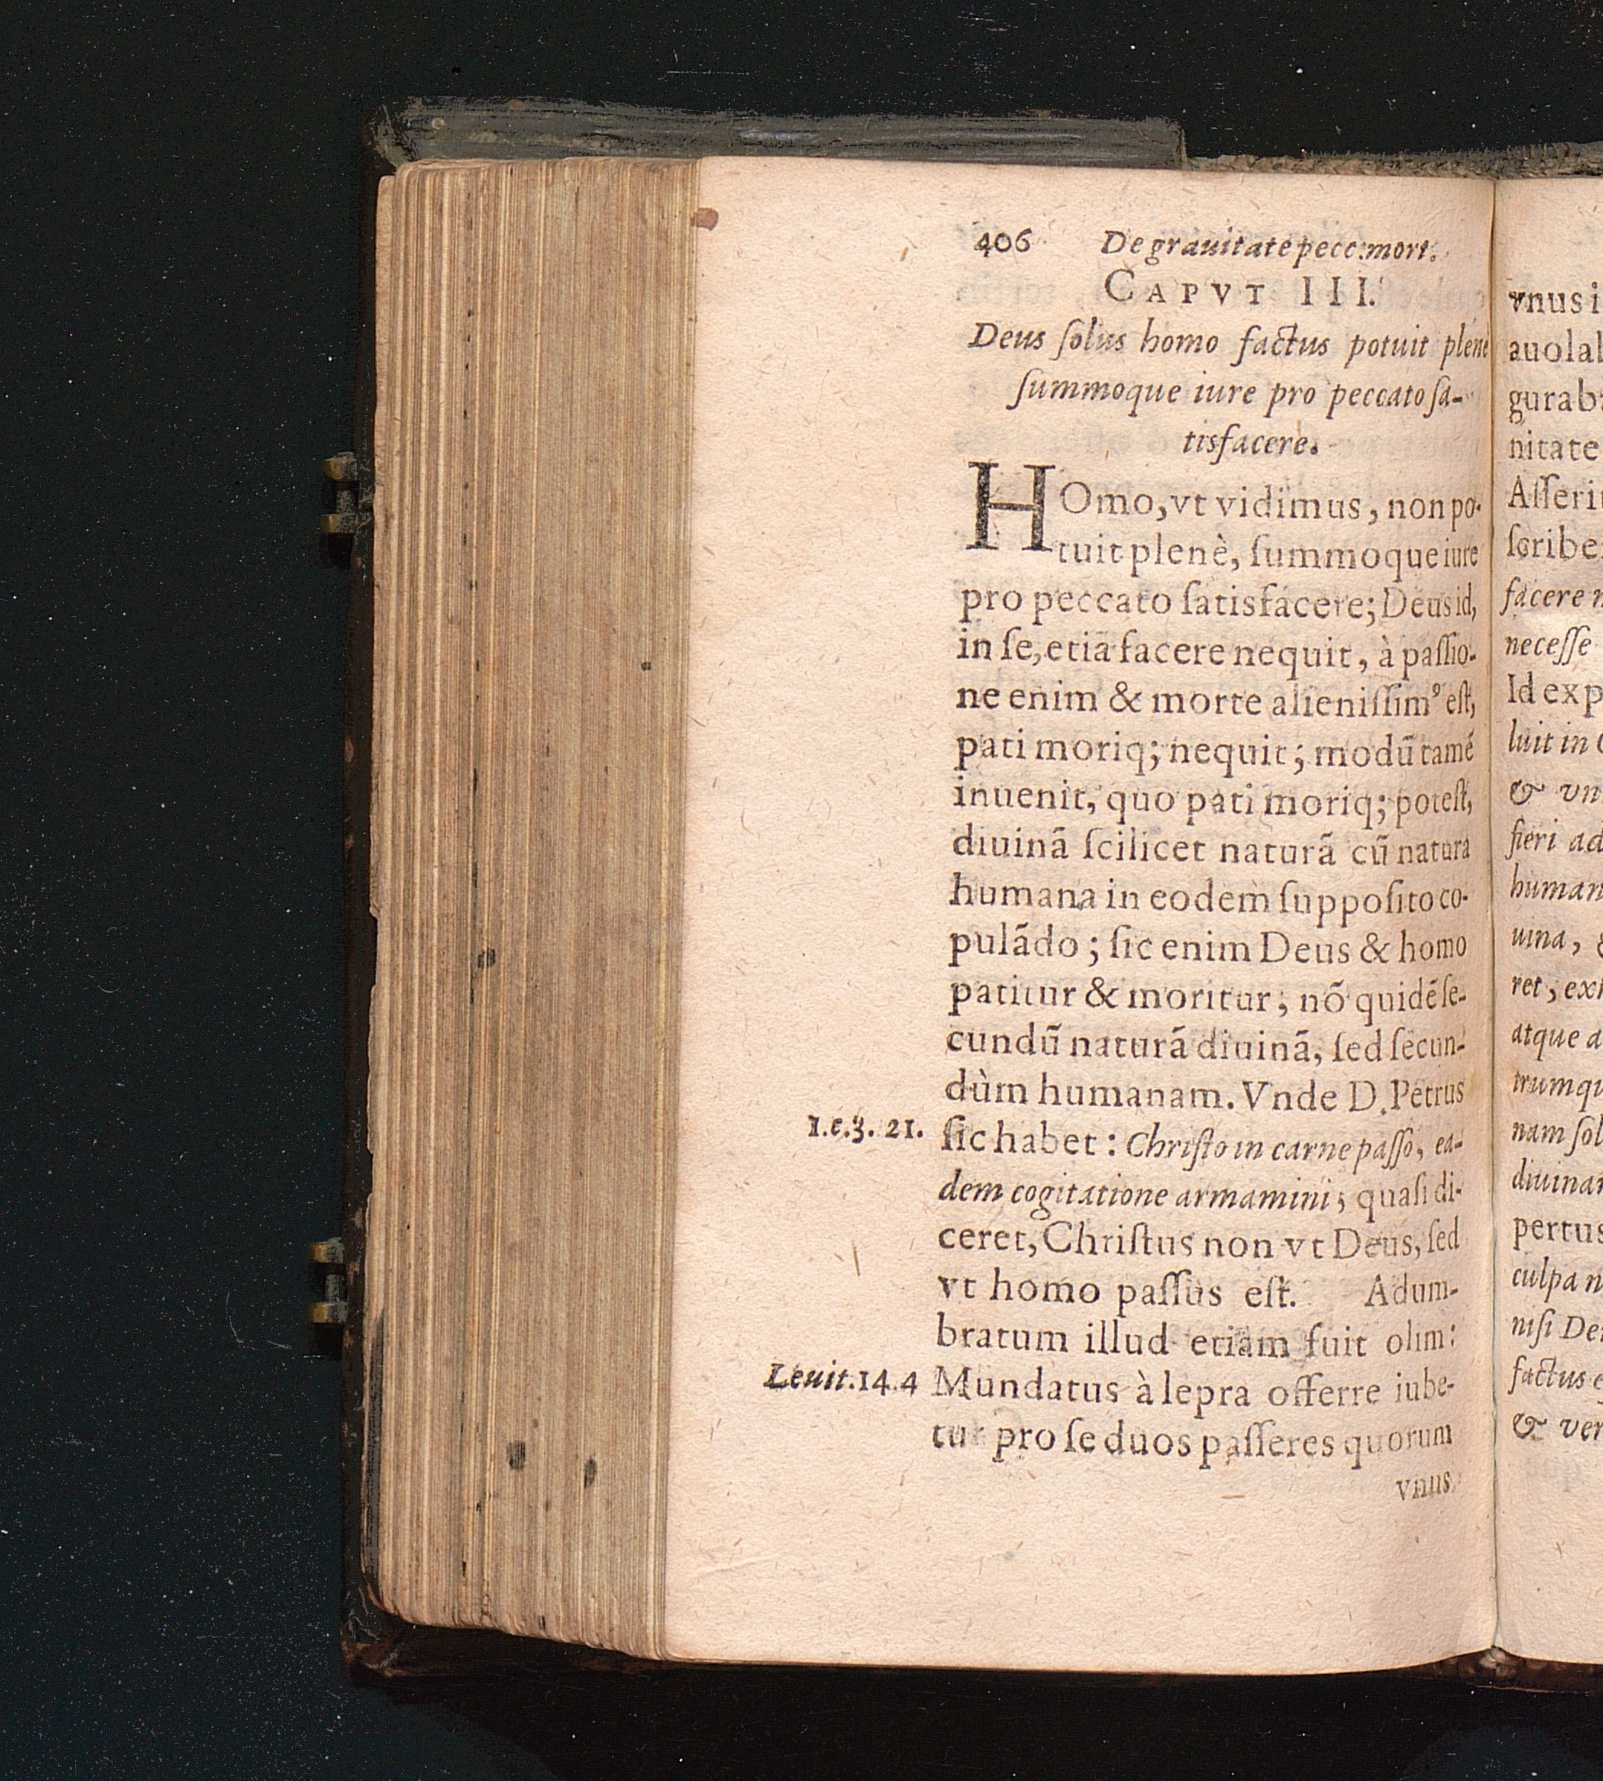 406 De grauitate pecc. mort.
CAPVT III.
Deus ſolus homo factus potuit plenè
ſummoque iure pro peccato ſa-
tisfacere.
HOmo, vt vidimus, non po-
tuit plenè, ſummoque iure
pro peccato ſatisfacere; Deus id,
in ſe, etiã facere nequit, à paſſio-
ne enim & morte alieniſſimꝰ eſt,
pati moriq; nequit; modũ tamẽ
inuenit, quo pati moriq; poteſt,
diuinã ſcilicet naturã cũ natura
humana in eodem ſuppoſito co-
pulãdo; ſic enim Deus & homo
patitur & moritur, nõ quidẽ ſe-
cundũ naturã diuinã, ſed ſecun-
dùm humanam. Vnde D. Petrus
1.c.3. 21. ſic habet: Chriſto in carne paſſo, ea-
dem cogitatione armamini; quaſi di-
ceret, Chriſtus non vt Deus, ſed
vt homo paſſus eſt. Adum-
bratum illud etiam fuit olim:
Leuit.14.4 Mundatus à lepra offerre iube-
tur pro ſe duos paſſeres quorum
vnus
vnus i
auolab
gurab
nitate
Aſſeri
ſcribe
facere n
neceſſe
Id exp
luit in
& vn
fieri ad
human
uina,
ret, ex
atque a
trumqu
nam ſol
diuinar
pertus
culpa n
niſi De
factus e
& ver